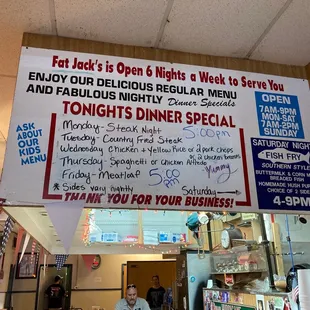 Fat Jack's is Open 6 Nights a Week to Serve You
ENJOY OUR DELICIOUS REGULAR MENU
AND FABULOUS NIGHTLY Dinner Specials
TONIGHTS DINNER SPECIAL
Monday- Steak Night 5:00pm
Tuesday- Country Fried Steak
Wednesday Chicken + Yellow Rice or 2 pork chops
or 2 chicken breasts
Thursday- Spaghetti or chicken Alfredo
Friday- Meatloaf 5:00 pm
* Sides vary nightly Saturday
THANK YOU FOR YOUR BUSINESS!
ASK
ABOUT
OUR
KIDS
MENU
OPEN
7AM-9PM
MON-SAT
7AM-2PM
SUNDAY
SATURDAY NIGHT
FISH FRY
SOUTHERN STYLE
BUTTERMILK & CORN
BREADED FISH
HOMEMADE HUSH
CHOICE OF 2 SIDES
4-9PM